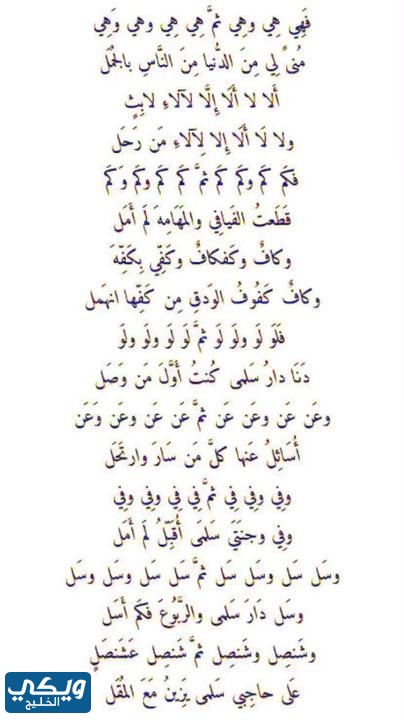 فَهِي هِي وهِي ثمَّ هِي هِي وهي وَهِي
مُنىً لِي مِنَ الدُّنيا مِنَ النَّاسِ بالجُمَل
أَلا لا أَلَا إِلَّا لآلاءِ لابِثٍ
ولا لَا أَلَا إلا لِآلاءِ مَن رَحَل
فكَم كَم وكَم كَم ثمَّ كَم كَم وكَم وَكَم
قَطَعتُ الفَيافِي والمَهَامِهَ لَم أَمَل
وكافٌ وكَفكافٌ وكَفِّي بِكَفِّهَ
وكافٌ كَفُوفُ الوَدقِ مِن كَفِّها انهَمل
فَلَو لَو ولَو لَو ثمَّ لَو لَو ولَو ولَو
دَنَا دارُ سَلمى كُنتُ أَوَّلَ مَن وَصَل
وعَن عَن وعَن عَن ثمَّ عَن عَن وعَن وَعَن
أُسَائِلُ عَنها كلَّ مَن سَارَ وارتَحَل
وفِي وفِي فِي ثمَّ فِي فِي وفِي وفِي
وفِي وجنَتَي سَلمَى أُقَبِّلُ لَم أَمَل
وسَل سَل وسَل سَل ثمَّ سَل سَل وسَل وسَل
وسَل دَارَ سَلمى والرَّبُوعَ فكَم أَسَل
وشَنصِل وشَنصِل ثمَّ شَنصِل عَشَنصَلٍ
عَلى حاجِبي سَلمى يَزينُ مَعَ المُقَل
ويكي
الخليج